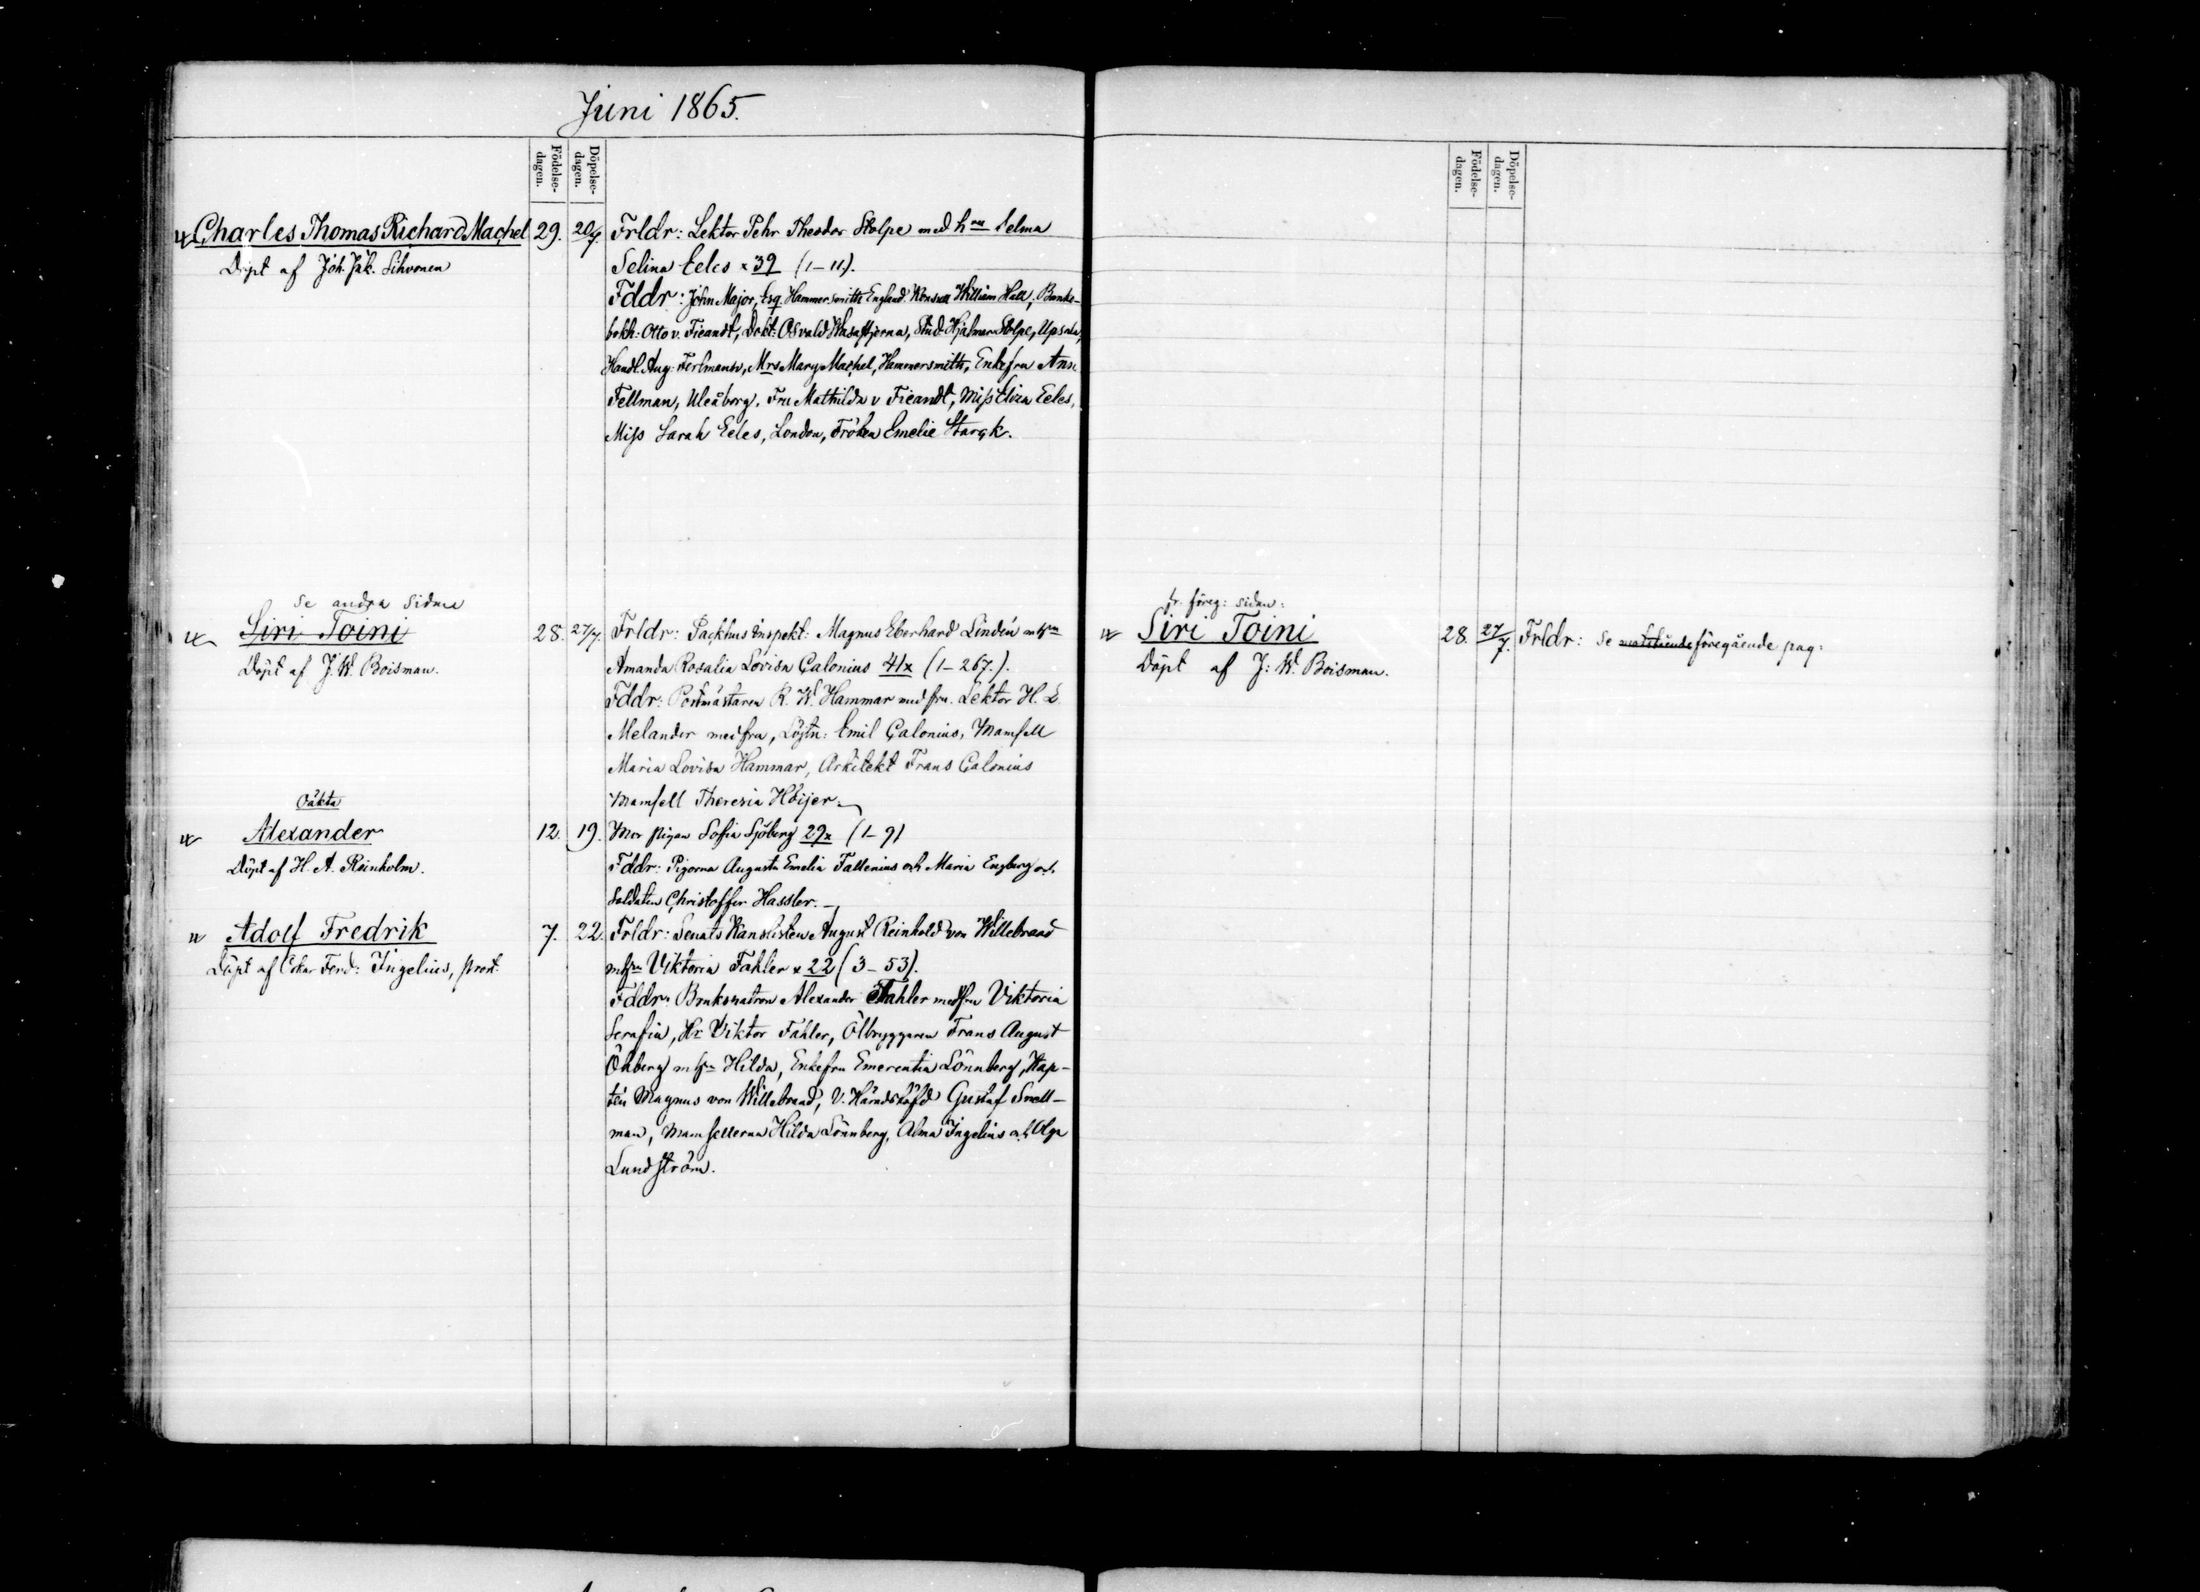 Juni 1865.
Födelse-
dagen.
Döpelse-
dagen.
Charles Thomas Richard Machel 29. 20/7. Frldr: Lektor Pehr Theodor Stolpe med h Selma
Döpt af Joh. Jak. Sihvonen
Selina Eeles x 39 (1–11).
Fddr: John Major, Esq. Hammersmith England. Konsul William Hall, Banko-
bokh: Otto v. Fieandt, Dokt: Osvald Wasastjerna, Stud Hjalmar Stolpe, Upsala,
Handl. Aug: , Mrs Mary Machel, Hammersmith, Enkefru
Fellman, Uleåborg, Fru Mathilda v Fieandt, Miss Eliza Eeles,
Miss Sarah Eeles, London, Fröken Emelie Starck.
Se andra sidan
Siri Toini 28. 27/7. Frldr: Packhus inspekt: Magnus Eberhard Lindén
Döpt af J. W. Boisman.
Amanda Rosalia Lovisa Calonius 41x (1–267.).
Fddr: Postmästaren R. W. Hammar med fru. Lektor H. L
Melander med fru, Löjtn: Emil Calonius, Mamsell
Maria Lovisa Hammar, Arkitekt Frans Calonius
Mamsell Theresia Höijer.
Oäkta
Alexander 12. 19. Mor pigan Sofia Sjöberg 29x (1–9)
Döpt af H. A. Reinholm.
Fddr: Pigorna Augusta Emelia Fallenius och Maria Engberg o.
Soldaten Christoffer Hassler.
Adolf Fredrik 7. 22. Frldr: Senats Kanslisten August Reinhold von Willebrand
Döpt af Oskar Ferd: Ingelius, prost.
Viktoria Fahler x 22 (3–53).
Fddr: Brukspatron Alexander Fahler med fru Viktoria
Serafia, Hr Viktor Fahler, Ölbryggaren Frans August
Öhberg Hilda, Enkefru Emerentia Lönnberg, Kap-
ten Magnus von Willebrand, V. Häradshöfd Gustaf Snell-
man, Mamsellerna Hilda Lönnberg, Alma Ingelius och Olga
Lundström.
Födelse-
dagen.
Döpelse-
dagen.
fr. föreg: sidan:
Siri Toini 28. 27/7. Frldr: Se föregående pag:
Döpt af J: W. Boisman.